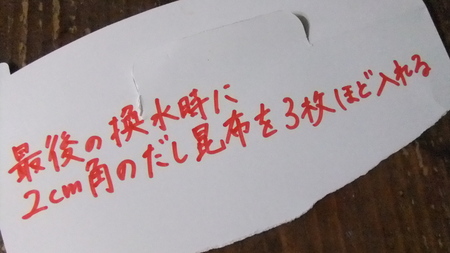 最後の換水時に
2cm角のだし昆布を3枚ほど入れる